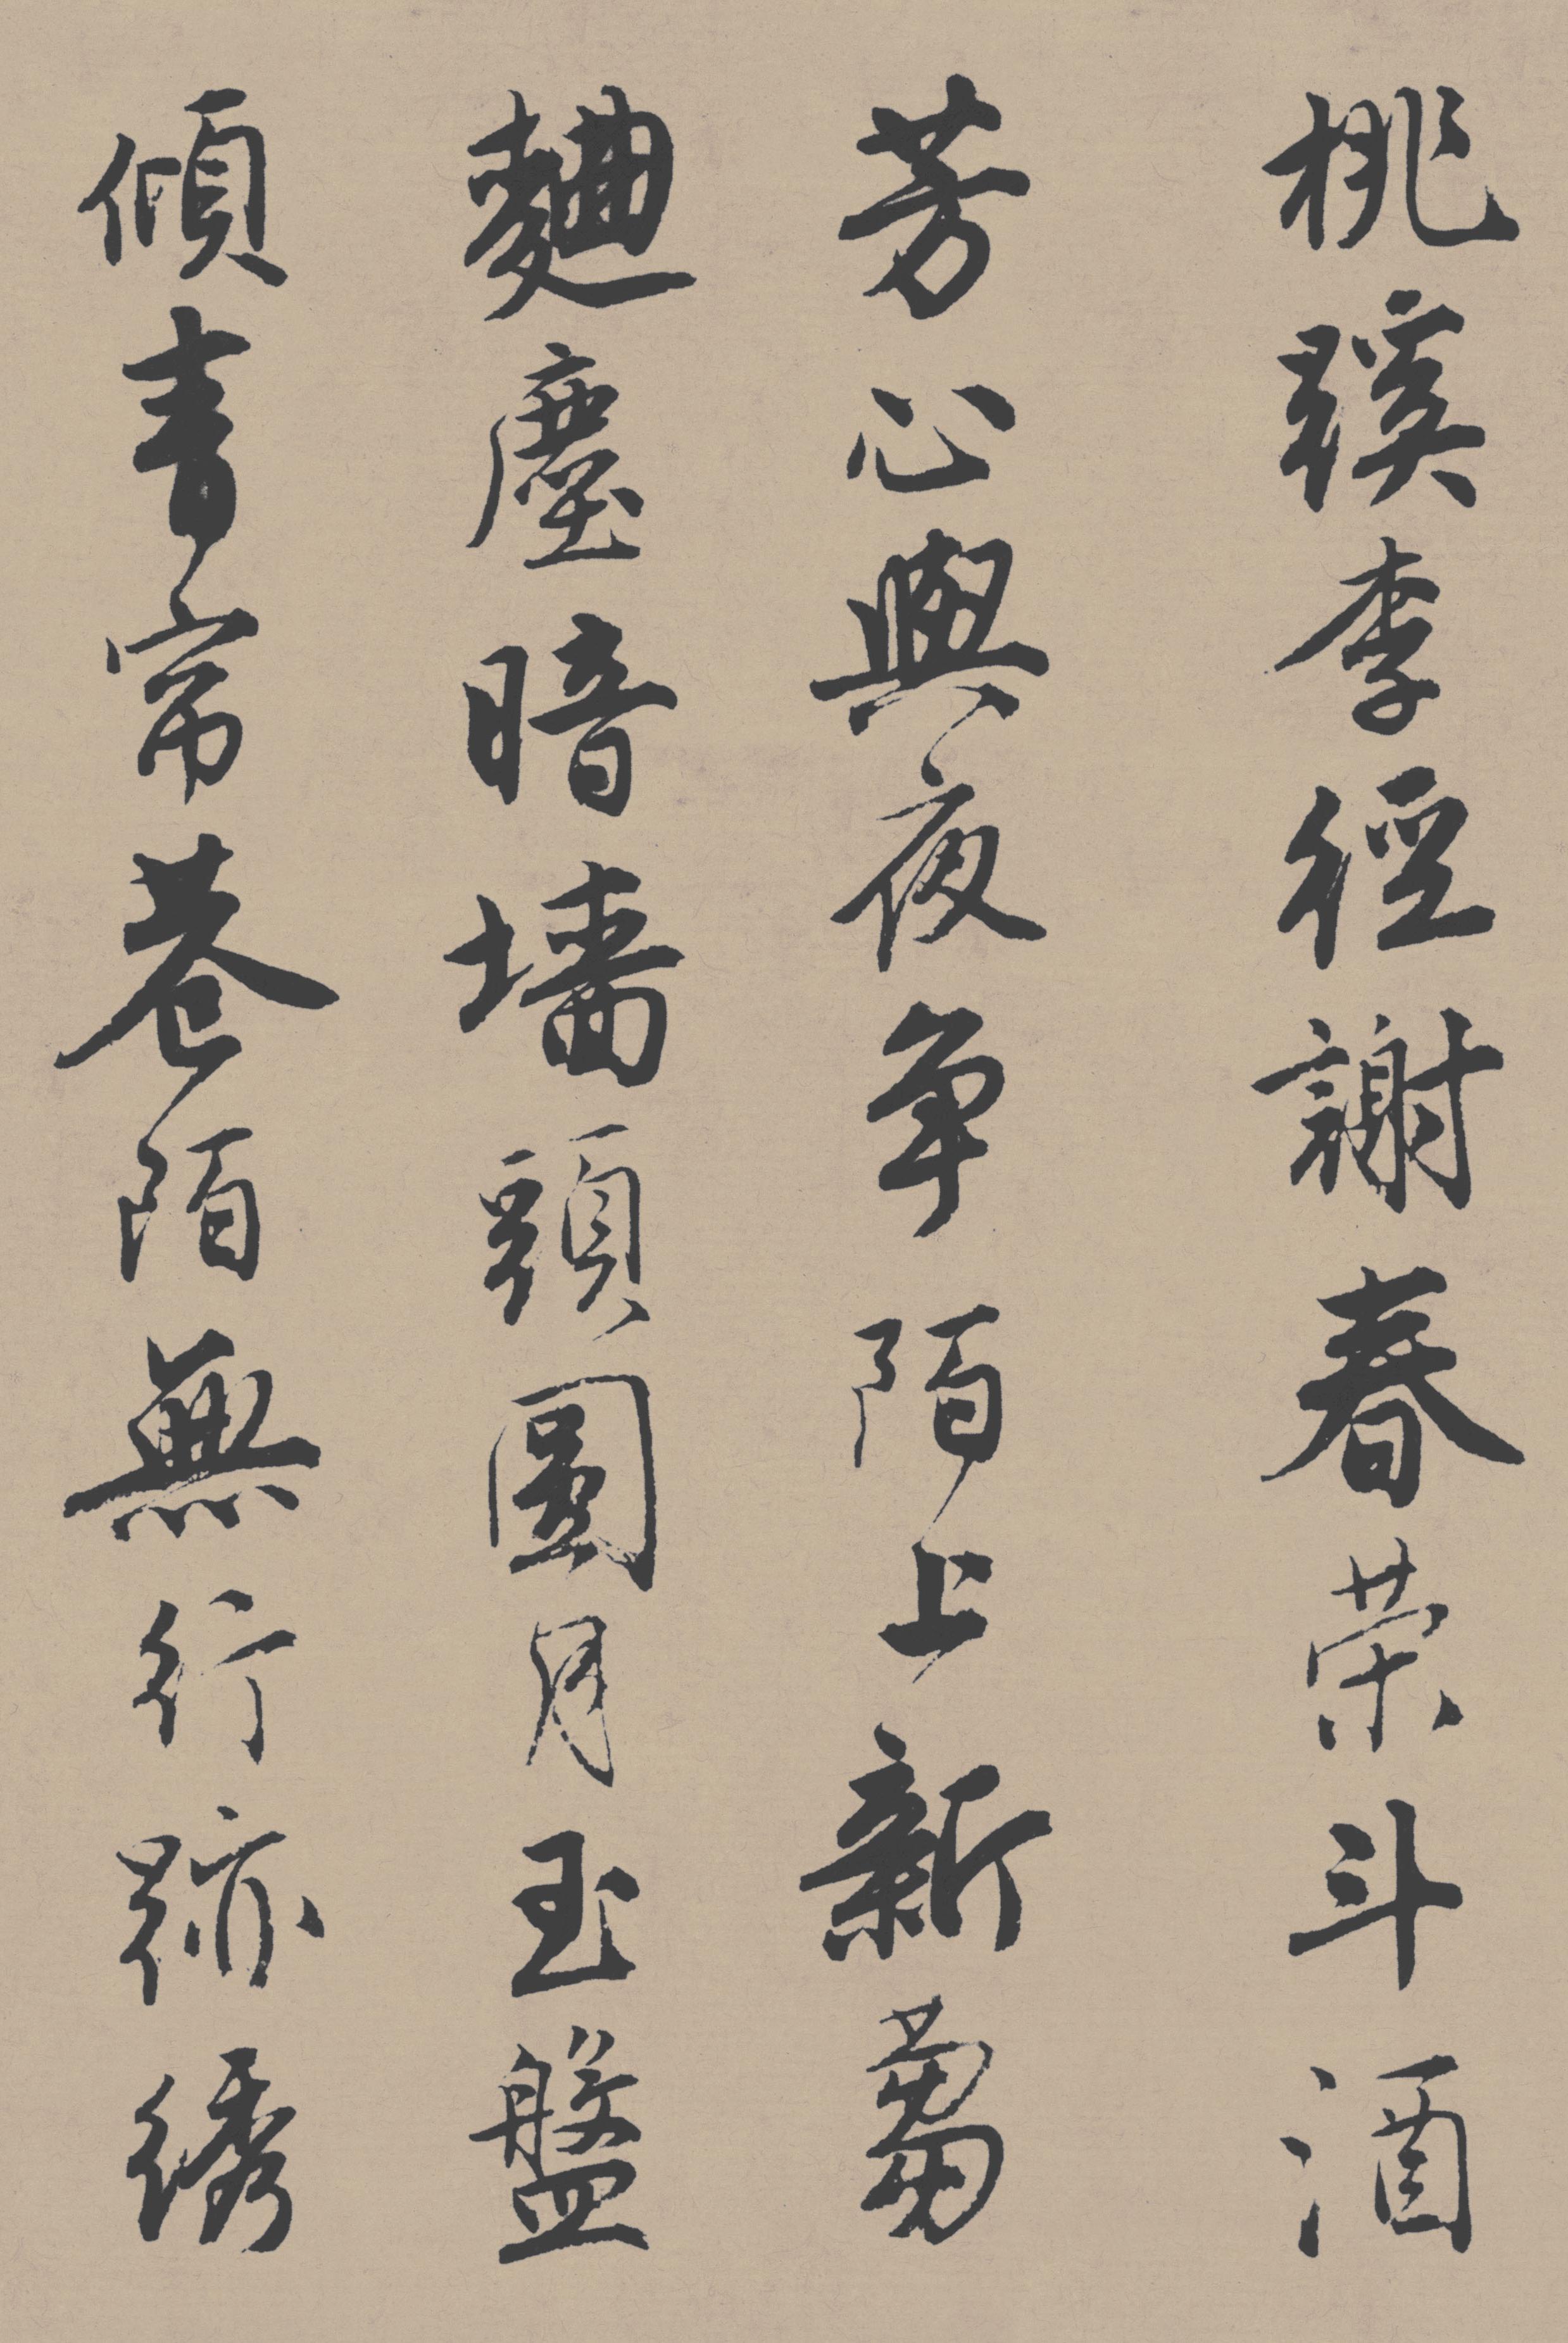 桃蹊李徑謝春荣斗酒
芳心與夜争陌上新蒭
麯塵暗墙頭圓月玉盤
傾青帘巷陌無行跡綉